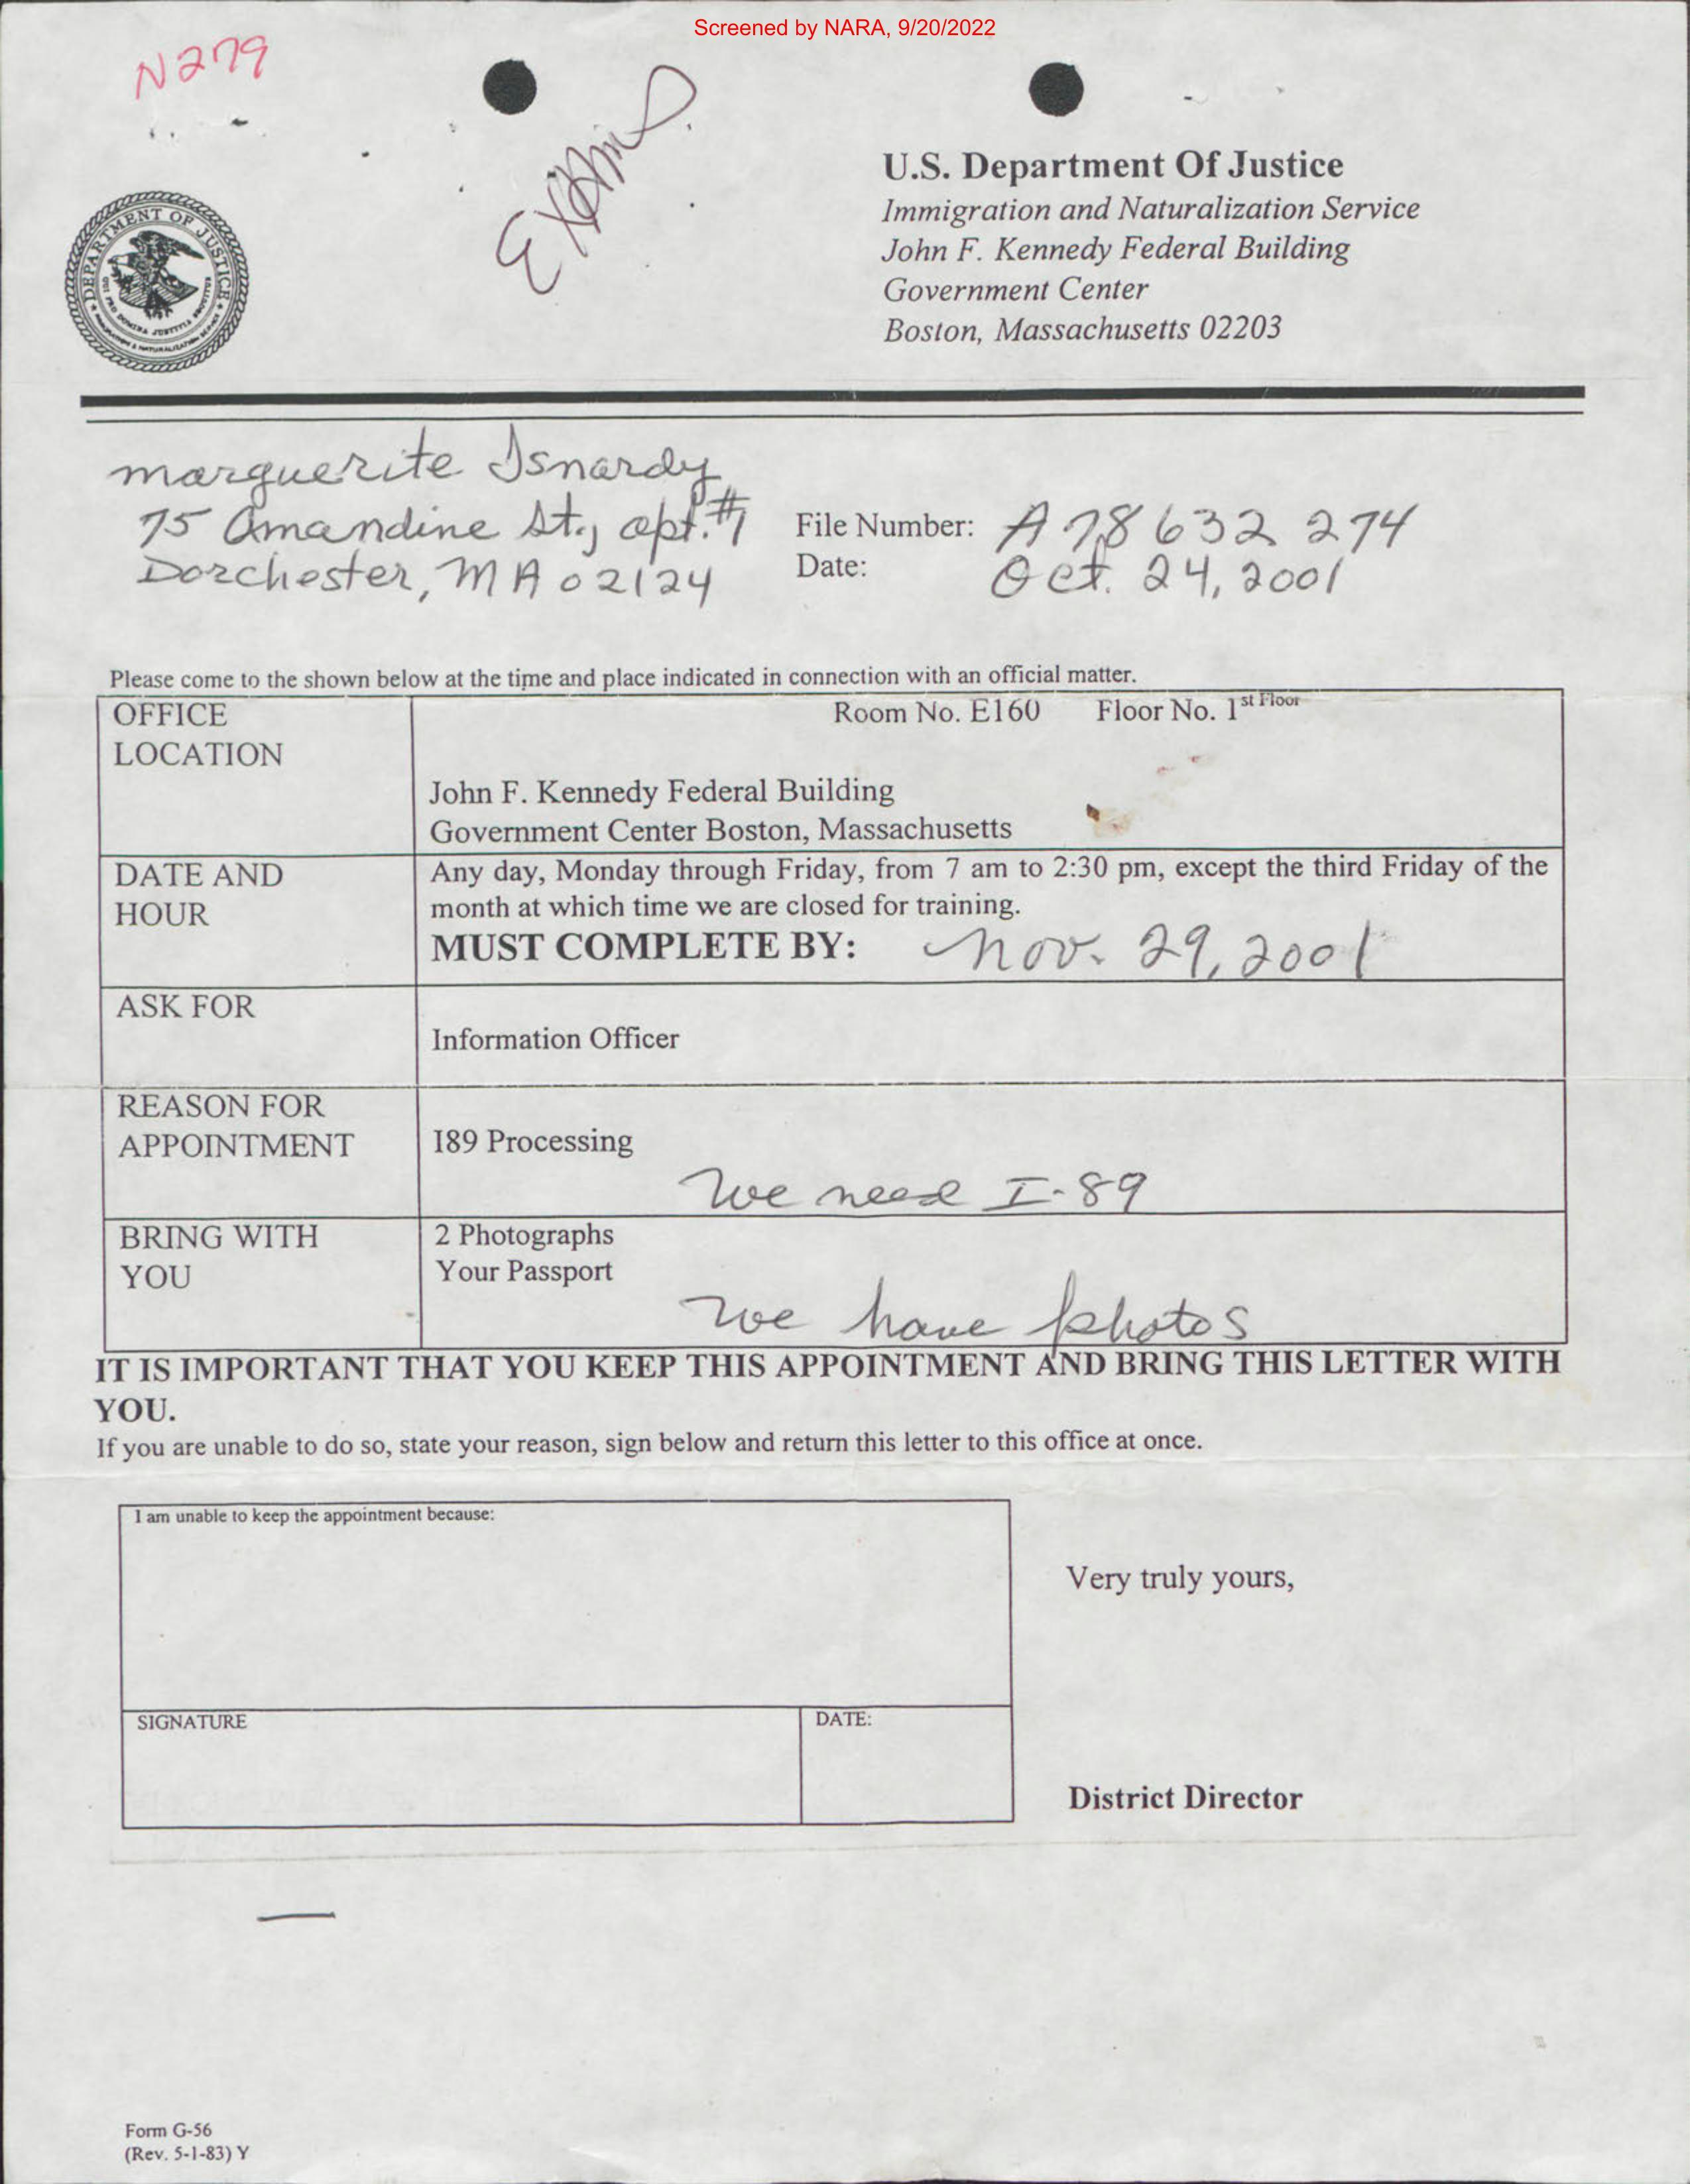 Screened by NARA, 9/20/2022
N279
Exams
DEPARTMENT OF JUSTICE
QUI PRO DOMINA JUSTITIA SEQUITUR
IMMIGRATION & NATURALIZATION SERVICE
U.S. Department Of Justice
Immigration and Naturalization Service
John F. Kennedy Federal Building
Government Center
Boston, Massachusetts 02203
marguerite Isnardy
75 Amandine St., apt. #1
Dorchester, MA 02124
File Number: A 78 632 274
Date: Oct. 24, 2001
Please come to the shown below at the time and place indicated in connection with an official matter.
OFFICE LOCATION
Room No. E160 Floor No. 1st Floor
John F. Kennedy Federal Building
Government Center Boston, Massachusetts
DATE AND HOUR
Any day, Monday through Friday, from 7 am to 2:30 pm, except the third Friday of the
month at which time we are closed for training.
MUST COMPLETE BY: Nov. 29, 2001
ASK FOR
Information Officer
REASON FOR APPOINTMENT
I89 Processing
We need I-89
BRING WITH YOU
2 Photographs
Your Passport
We have photos
IT IS IMPORTANT THAT YOU KEEP THIS APPOINTMENT AND BRING THIS LETTER WITH
YOU.
If you are unable to do so, state your reason, sign below and return this letter to this office at once.
I am unable to keep the appointment because:
Very truly yours,
SIGNATURE
DATE:
District Director
Form G-56
(Rev. 5-1-83) Y